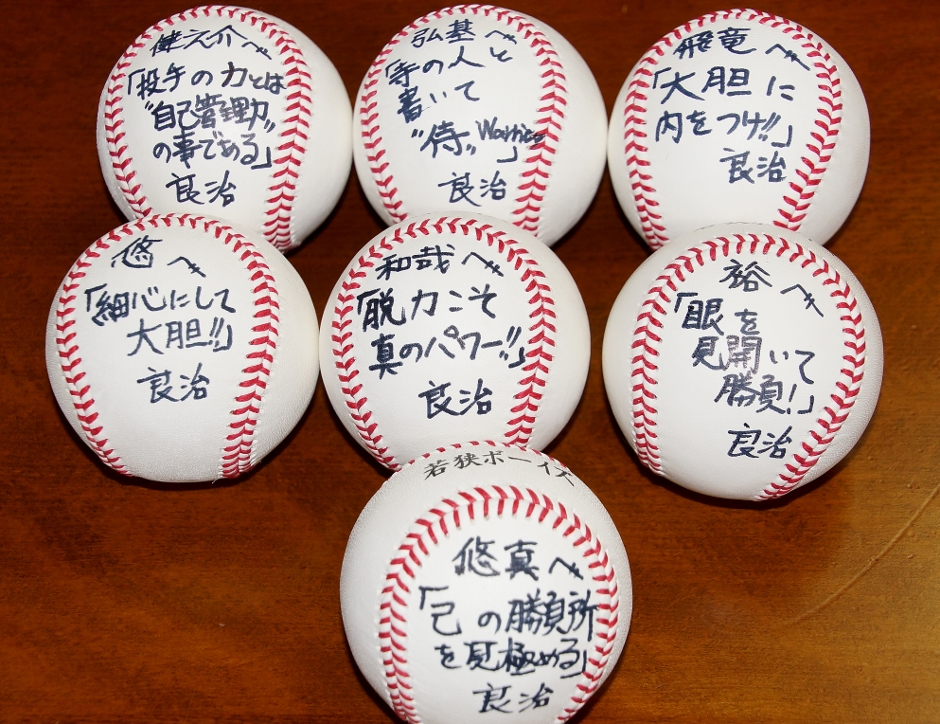 健之介へ
「投手の力とは
"自己管理力"
の事である」
良治
弘基へ
「寺の人と
書いて
"侍" Warrior」
良治
飛竜へ
「大胆に
内をつけ!!」
良治
悠へ
「細心にして
大胆!!」
良治
和哉へ
「脱力こそ
真のパワー!!」
良治
裕へ
「眼を
見開いて
勝負!」
良治
若狭ボーイズ
悠真へ
「己の勝負所
を見極める」
良治